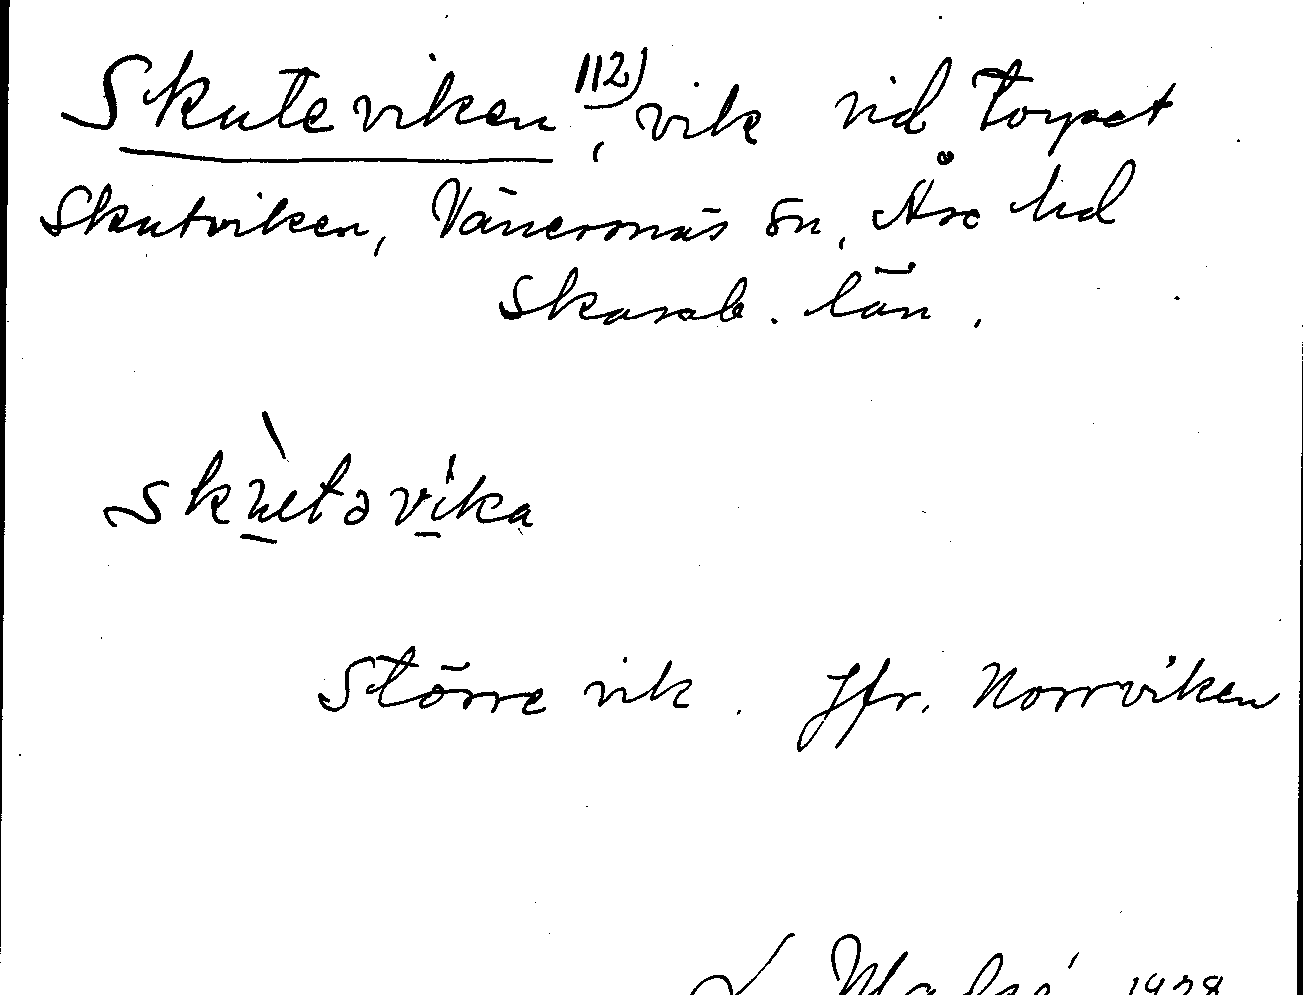 Skuteviken 112), vik vid torpet
Skutviken, Vänersnäs sn, Åse hd
Skarab. län.
skùtəvíka
Större vik. Jfr. Norrviken
1928